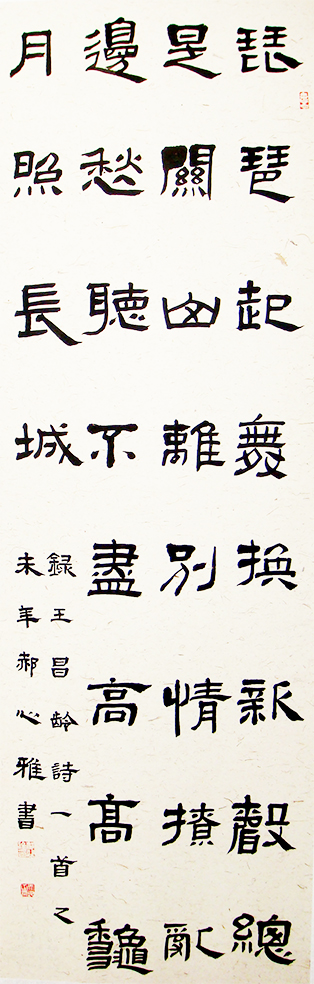 琵琶起舞換新聲總
是關山離別情撩亂
邊愁聽不盡高高龝
月照長城
録王昌齡詩一首乙
未年郝心雅書